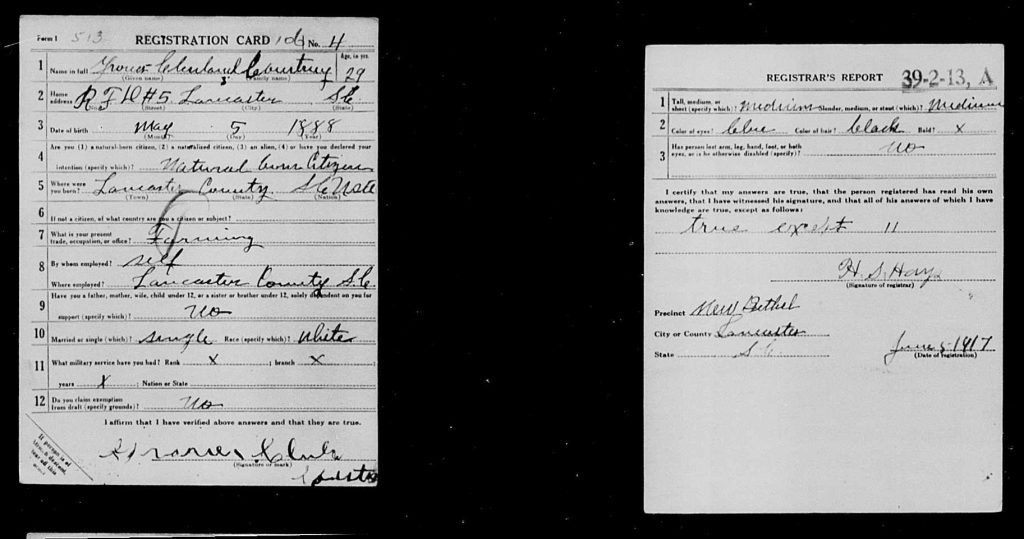 Form 1 513 REGISTRATION CARD No. 4
1 Name in full Cleveland Courtney Age, in yrs. 29
(Given name) (Family name)
2 Home address R F D #5 Lancaster S.C.
(No.) (Street) (City) (State)
3 Date of birth May 5 1888
(Month) (Day) (Year)
Are you (1) a natural-born citizen, (2) a naturalized citizen, (3) an alien, (4) or have you declared your
4 intention (specify which)? Natural Born Citizen
5 Where were you born? Lancaster County. S.C USA
(Town) (State) (Nation)
6 If not a citizen, of what country are you a citizen or subject?
7 What is your present trade, occupation, or office? Farming
8 By whom employed? self
Where employed? Lancaster County S.C.
9 Have you a father, mother, wife, child under 12, or a sister or brother under 12, solely dependent on you for
support (specify which)? No
10 Married or single (which)? single Race (specify which)? White
11 What military service have you had? Rank X ; branch X ;
years X ; Nation or State
12 Do you claim exemption from draft (specify grounds)? No
I affirm that I have verified above answers and that they are true.
(Signature or mark)
If person is of
African descent,
tear off this
corner
REGISTRAR'S REPORT 39-2-13, A
1 Tall, medium, or short (specify which)? medium Slender, medium, or stout (which)? Medium
2 Color of eyes? blue Color of hair? black Bald? X
3 Has person lost arm, leg, hand, foot, or both eyes, or is he otherwise disabled (specify)? No
I certify that my answers are true, that the person registered has read his own
answers, that I have witnessed his signature, and that all of his answers of which I have
knowledge are true, except as follows:
true except 11
H. S. Hay
(Signature of registrar)
Precinct New Bethel
City or County Lancaster
State S.C June 5-1917
(Date of registration)